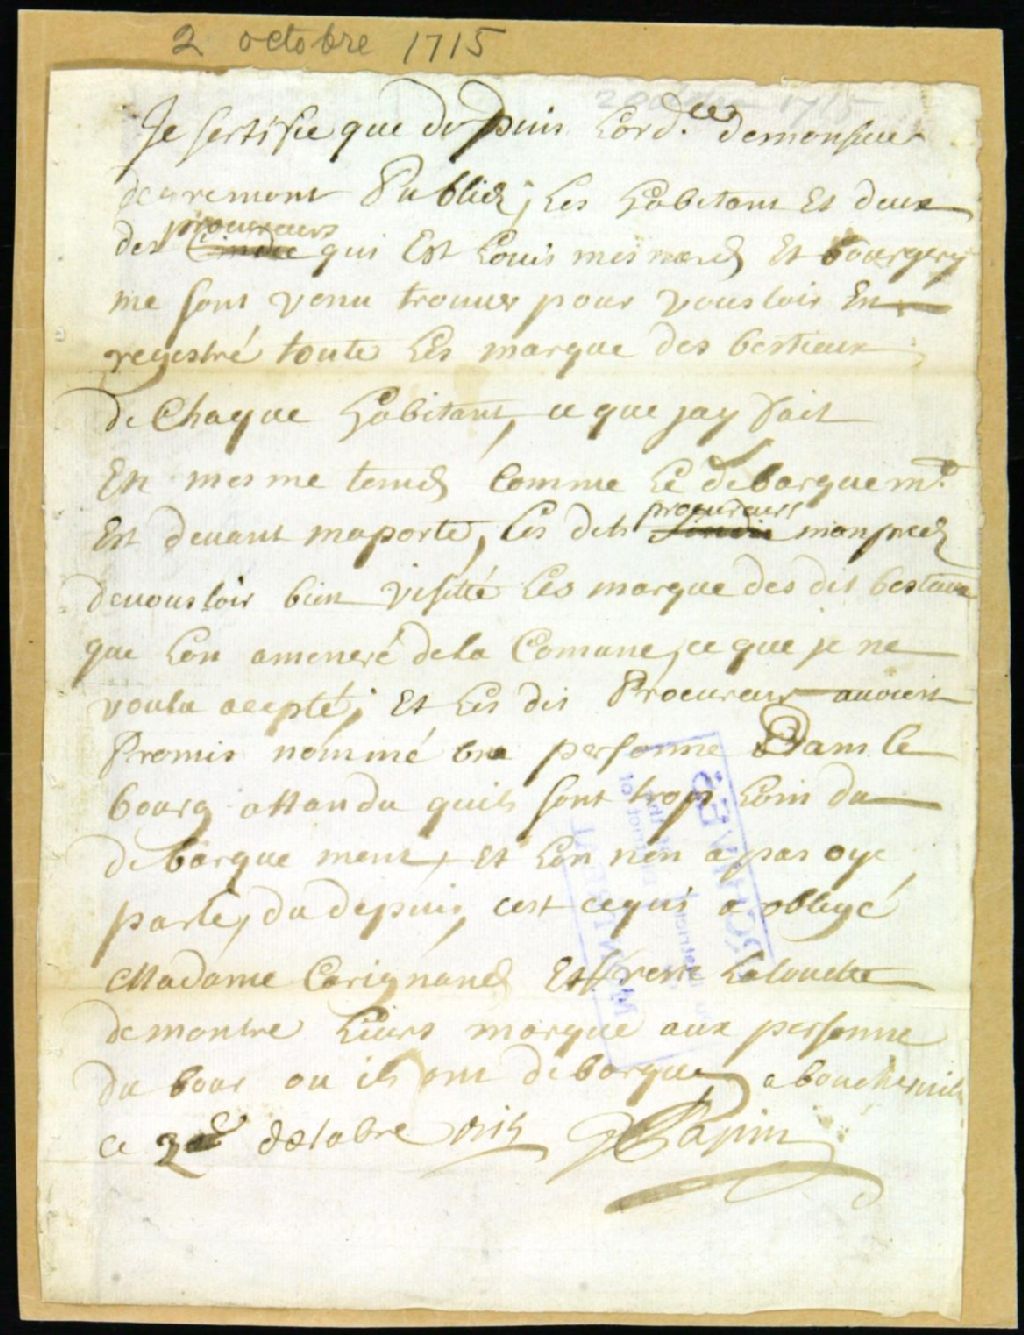 2 octobre 1715
Je sertifie que du depuis Lord.ce de monsieur
de gremont Publiéz; Les habitans Et deux
procureurs
des Sindic qui Est Louis mesnard Et bourgery
me sont venu trouver pour voulloir En
regestré toute Les marque des bestiaux
de Chaque habitant, ce que jay fait
En mesme tems Comme Le debarquemt.
procureurs
Est devant maporte, Les dits Sindic
de voulloir bien visitté Les marque des dit bestiaux
que Lon ameneré dela Comune, ce que je ne
voulu acepté; Et Les dis Procureur avoient
Promis nommé une personne Dans le
bourg attandu quils sont trop Loin du
debarque ment, Et Lon nen a pas oye
parlé, du depuis, cest cequi a obligé
Madame Carignand Et Pierre Lalouette
de montré Leurs marque aux personne
du bour ou ils ont debarqué, a boucherville
Ce 2e octobre 1715 Papin
ARCHIVES
MONTREAL